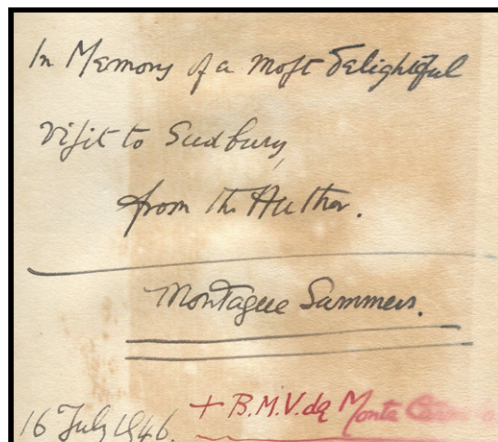 In Memory of a most delightful
visit to Sudbury,
from the Author.
Montague Summers.
16 July 1946. + B.M.V. de Monte Carmelo